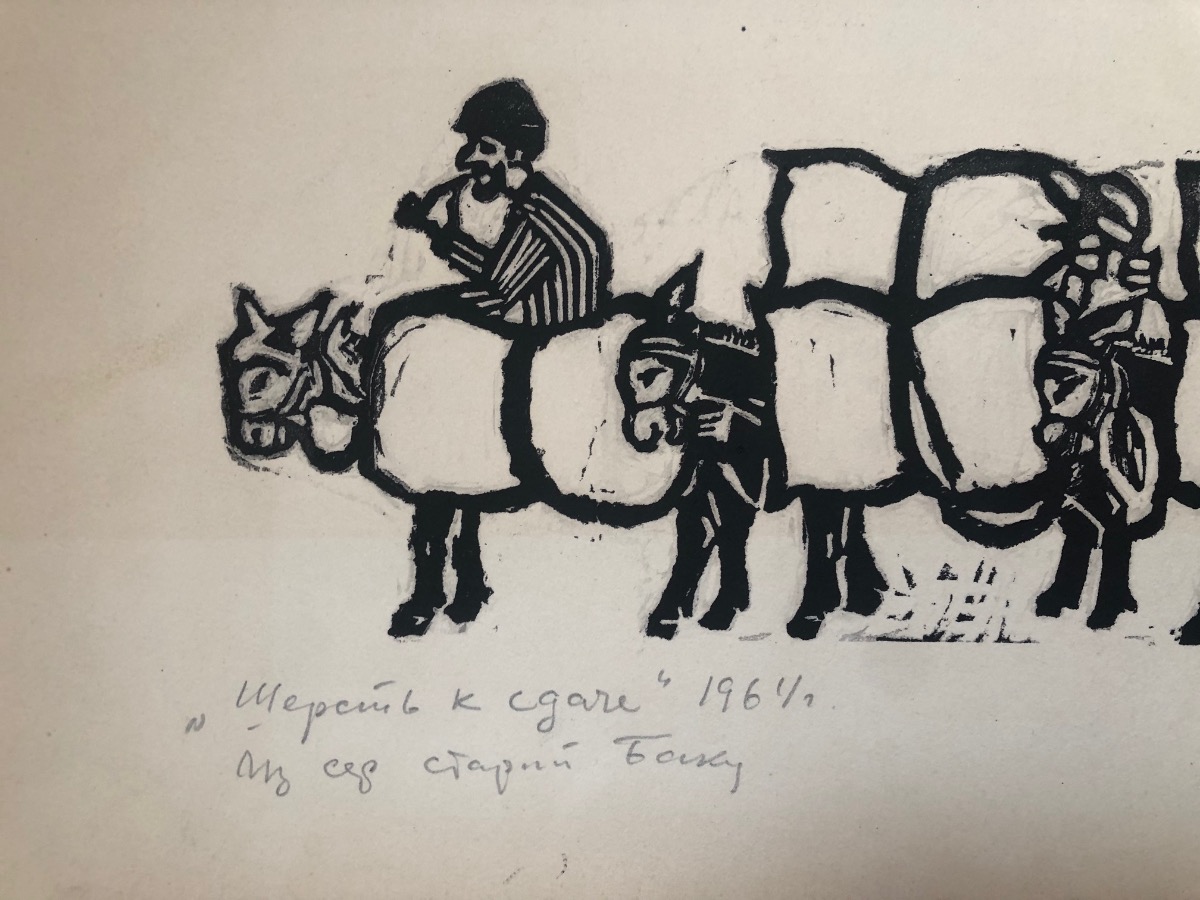 „Шерсть к сдаче“ 1961/г.
Из сер старый Баку